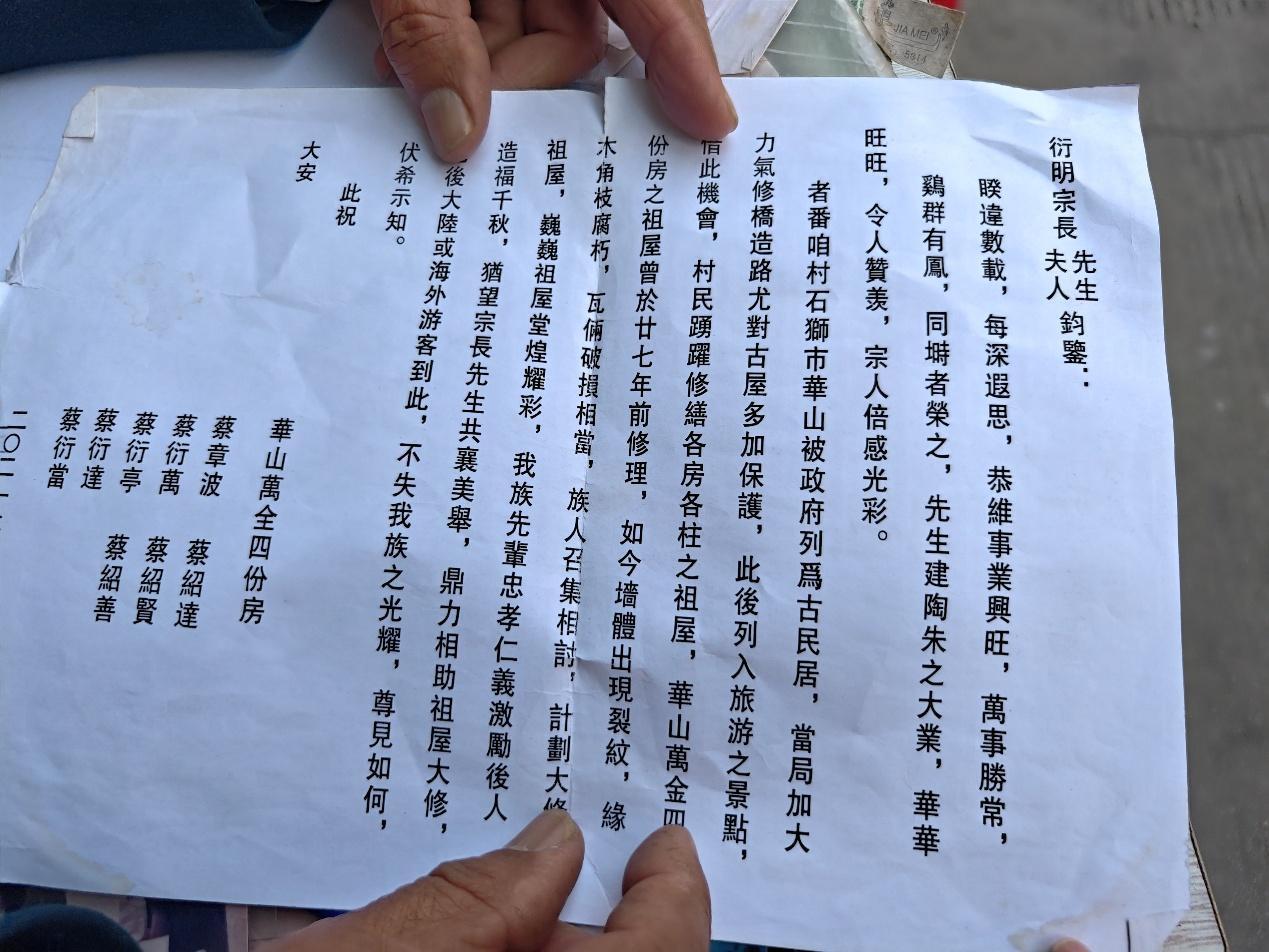 衍明宗長先生夫人鈞鑒：
睽違數載，每深遐思，恭維事業興旺，萬事勝常，
鷄群有鳳，同塒者榮之，先生建陶朱之大業，華華
旺旺，令人贊羡，宗人倍感光彩。
者番咱村石獅市華山被政府列爲古民居，當局加大
力氣修橋造路尤對古屋多加保護，此後列入旅游之景點，
借此機會，村民踴躍修繕各房各柱之祖屋，華山萬金四
份房之祖屋曾於廿七年前修理，如今墻體出現裂紋，緣
木角枝腐朽，瓦倆破損相當，族人召集相討，計劃大修
祖屋，巍巍祖屋堂煌耀彩，我族先輩忠孝仁義激勵後人
造福千秋，猶望宗長先生共襄美舉，鼎力相助祖屋大修，
後大陸或海外游客到此，不失我族之光耀，尊見如何，
伏希示知。
此祝
大安
華山萬全四份房
蔡章波 蔡紹達
蔡衍萬 蔡紹賢
蔡衍亭 蔡紹善
蔡衍達
蔡衍當
二〇二一
JIA MEI®